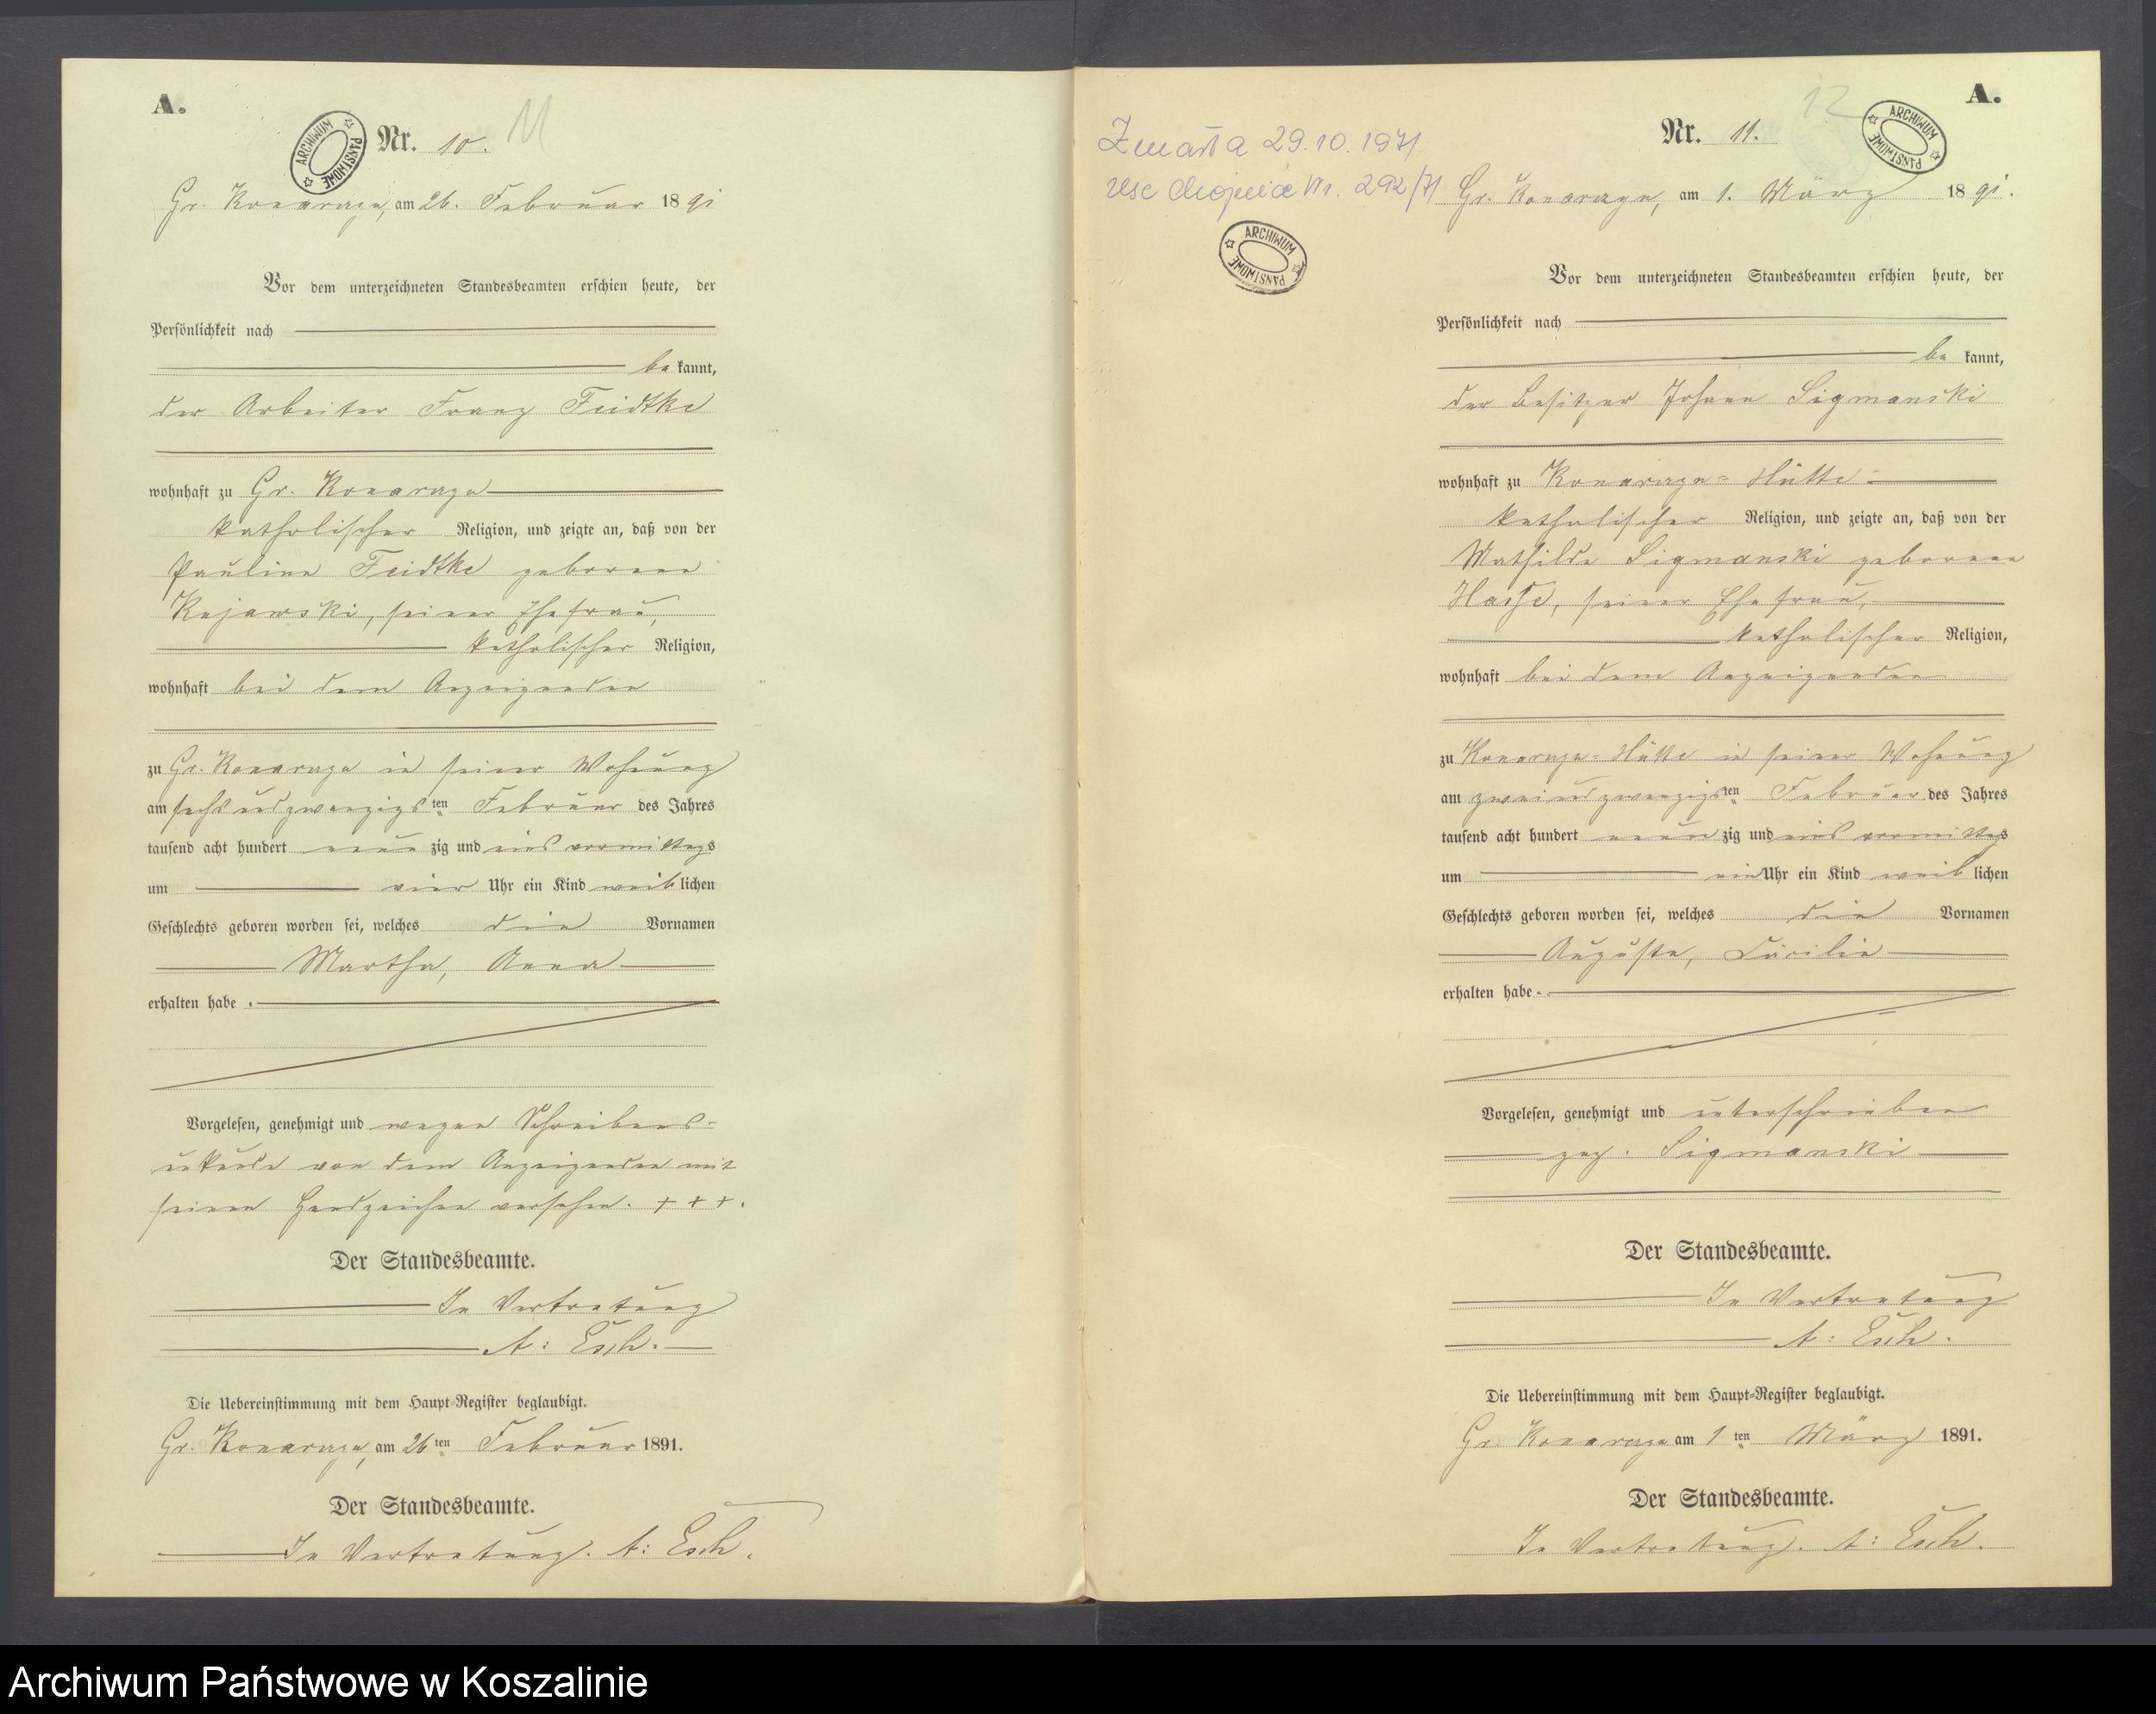 A.
ARCHIWUM PAŃSTWOWE
Nr. 10. 11
Gr. Konarzyn, am 26. Februar 1891
Vor dem unterzeichneten Standesbeamten erschien heute, der
Persönlichkeit nach
be kannt,
der Arbeiter Franz Feidtke
wohnhaft zu Gr. Konarzyn
katholischer Religion, und zeigte an, daß von der
Pauline Feidtke geborene
Kujawski, seiner Ehefrau,
katholischer Religion,
wohnhaft bei dem Anzeigenden
zu Gr. Konarzyn in seiner Wohnung
am sechsundzwanzigsten Februar des Jahres
tausend acht hundert neun zig und eins vormittags
um vier Uhr ein Kind weib lichen
Geschlechts geboren worden sei, welches die Vornamen
Martha, Anna
erhalten habe.
Vorgelesen, genehmigt und wegen Schreibens-
unkunde von dem Anzeigenden mit
seinem Handzeichen versehen. + + +.
Der Standesbeamte.
In Vertretung
A: Esch.
Die Uebereinstimmung mit dem Haupt-Register beglaubigt.
Gr. Konarzyn, am 26 ten Februar 1891.
Der Standesbeamte.
In Vertretung. A: Esch.
A.
12
ARCHIWUM PAŃSTWOWE
Nr. 11.
Zmarła 29.10.1971
USC Chojnice Nr. 292/71
ARCHIWUM PAŃSTWOWE
Gr. Konarzyn, am 1. März 1891.
Vor dem unterzeichneten Standesbeamten erschien heute, der
Persönlichkeit nach
be kannt,
der Besitzer Johann Sigmanski
wohnhaft zu Konarzyn-Hütte
katholischer Religion, und zeigte an, daß von der
Mathilde Sigmanski geborene
Hasse, seiner Ehefrau,
katholischer Religion,
wohnhaft bei dem Anzeigenden
zu Konarzyn-Hütte in seiner Wohnung
am zweiundzwanzigsten Februar des Jahres
tausend acht hundert neun zig und eins vormittags
um ein Uhr ein Kind weib lichen
Geschlechts geboren worden sei, welches die Vornamen
Auguste, Cäcilie
erhalten habe.
Vorgelesen, genehmigt und unterschrieben
gez. Sigmanski
Der Standesbeamte.
In Vertretung
A: Esch.
Die Uebereinstimmung mit dem Haupt-Register beglaubigt.
Gr. Konarzyn am 1 ten März 1891.
Der Standesbeamte.
In Vertretung. A: Esch.
Archiwum Państwowe w Koszalinie